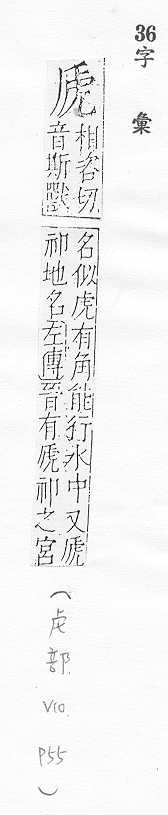 36字彙
虒
相咨切
音斯獸
名似虎有角能行水中又虒
祁地名左傳晉有虒祁之宮
(虍部 V10. P55)